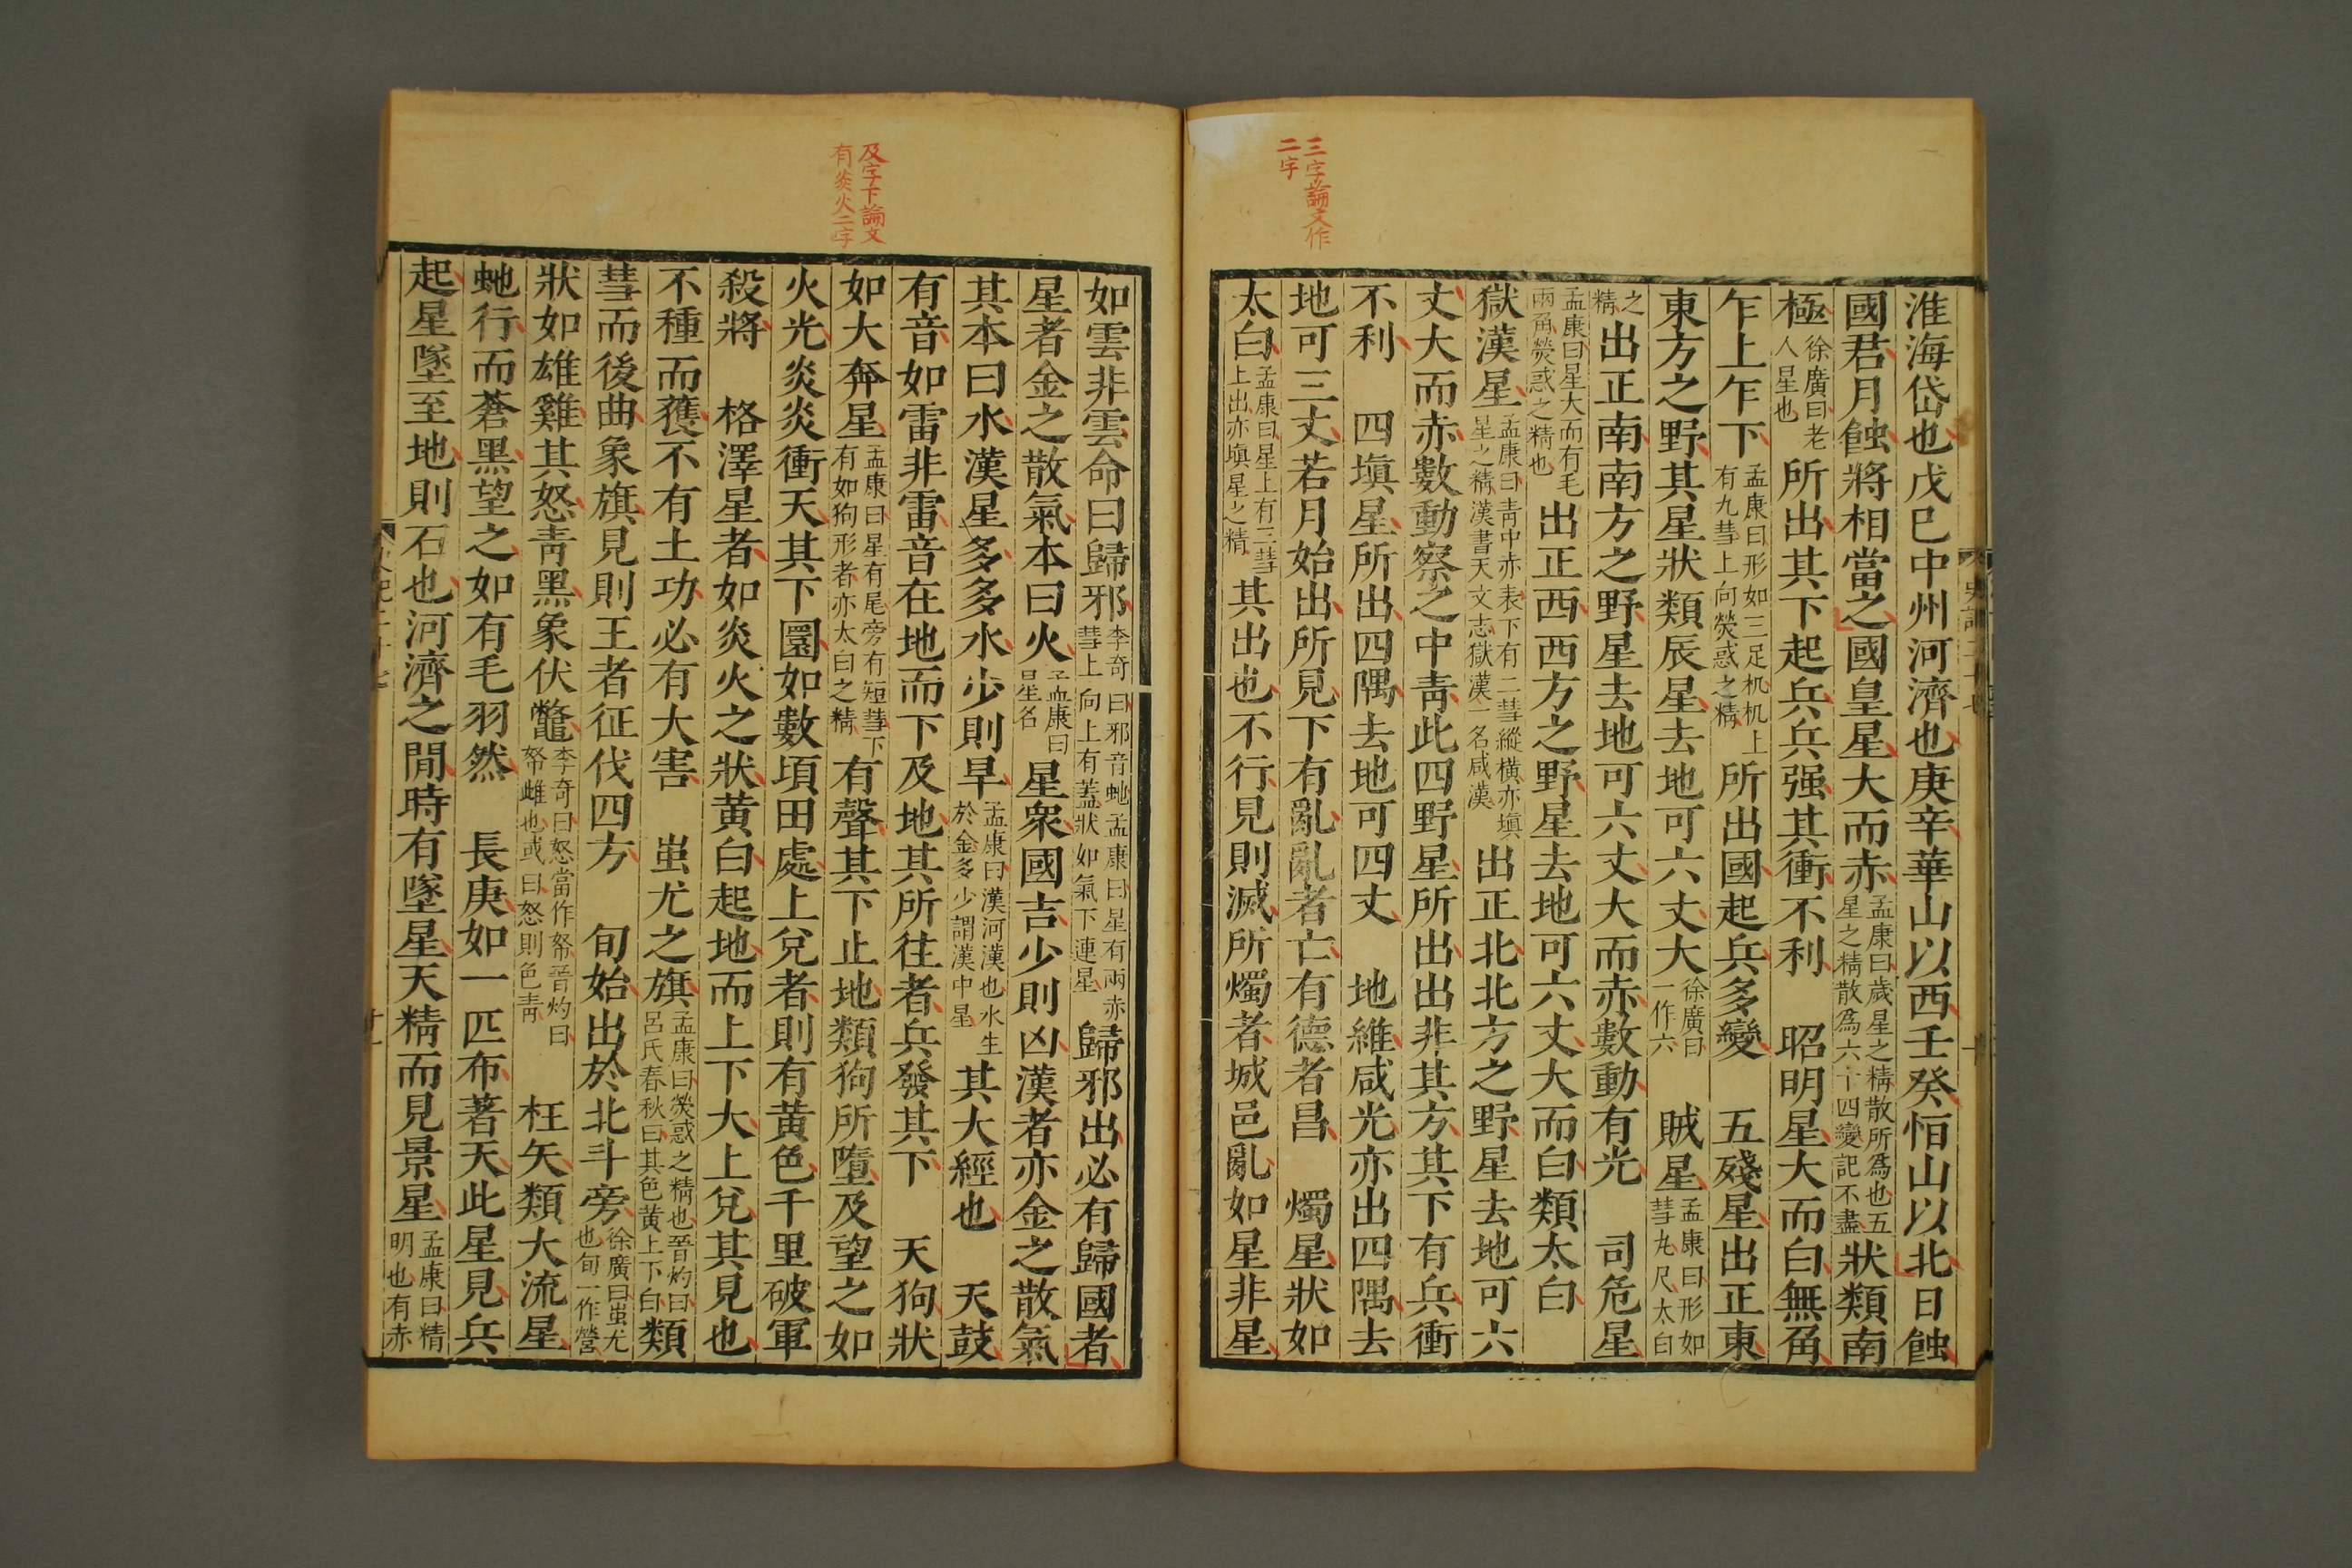 三字論文作
二字
淮海岱也戊巳中州河濟也庚辛華山以西壬癸恒山以北日蝕
國君月蝕將相當之國皇星大而赤孟康曰歲星之精散所爲也五星之精散爲六十四變記不盡狀類南
極徐廣曰老人星也所出其下起兵兵强其衝不利　昭明星大而白無角
乍上乍下孟康曰形如三足机机上有九彗上向熒惑之精所出國起兵多變　五殘星出正東
東方之野其星狀類辰星去地可六丈大徐廣曰一作六　賊星孟康曰形如彗九尺太白
之精出正南南方之野星去地可六丈大而赤數動有光　司危星
孟康曰星大而有毛兩角熒惑之精也出正西西方之野星去地可六丈大而白類太白
獄漢星孟康曰青中赤表下有二彗縱橫亦塡星之精漢書天文志獄漢一名咸漢出正北北方之野星去地可六
丈大而赤數動察之中青此四野星所出出非其方其下有兵衝
不利　四塡星所出四隅去地可四丈　地維咸光亦出四隅去
地可三丈若月始出所見下有亂亂者亡有德者昌　燭星狀如
太白孟康曰星上有三彗上出亦塡星之精其出也不行見則滅所燭者城邑亂如星非星
及字下論文
有炎火二字
如雲非雲命曰歸邪李奇曰邪音虵孟康曰星有兩赤彗上向上有蓋狀如氣下連星歸邪出必有歸國者
星者金之散氣本曰火孟康曰星名星衆國吉少則凶漢者亦金之散氣
其本曰水漢星多多水少則旱孟康曰漢河漢也水生於金多少謂漢中星其大經也　天鼓
有音如雷非雷音在地而下及地其所往者兵發其下　天狗狀
如大奔星孟康曰星有尾旁有短彗下有如狗形者亦太白之精有聲其下止地類狗所墮及望之如
火光炎炎衝天其下圜如數頃田處上兌者則有黃色千里破軍
殺將　格澤星者如炎火之狀黃白起地而上下大上兌其見也
不種而穫不有土功必有大害　蚩尤之旗孟康曰熒惑之精也晉灼曰呂氏春秋曰其色黃上下白類
彗而後曲象旗見則王者征伐四方　旬始出於北斗旁徐廣曰蚩尤也旬一作營
狀如雄雞其怒青黑象伏鼈李奇曰怒當作帑晉灼曰帑雌也或曰怒則色青　枉矢類大流星
虵行而蒼黑望之如有毛羽然　長庚如一匹布著天此星見兵
起星墜至地則石也河濟之間時有墜星天精而見景星孟康曰精明也有赤